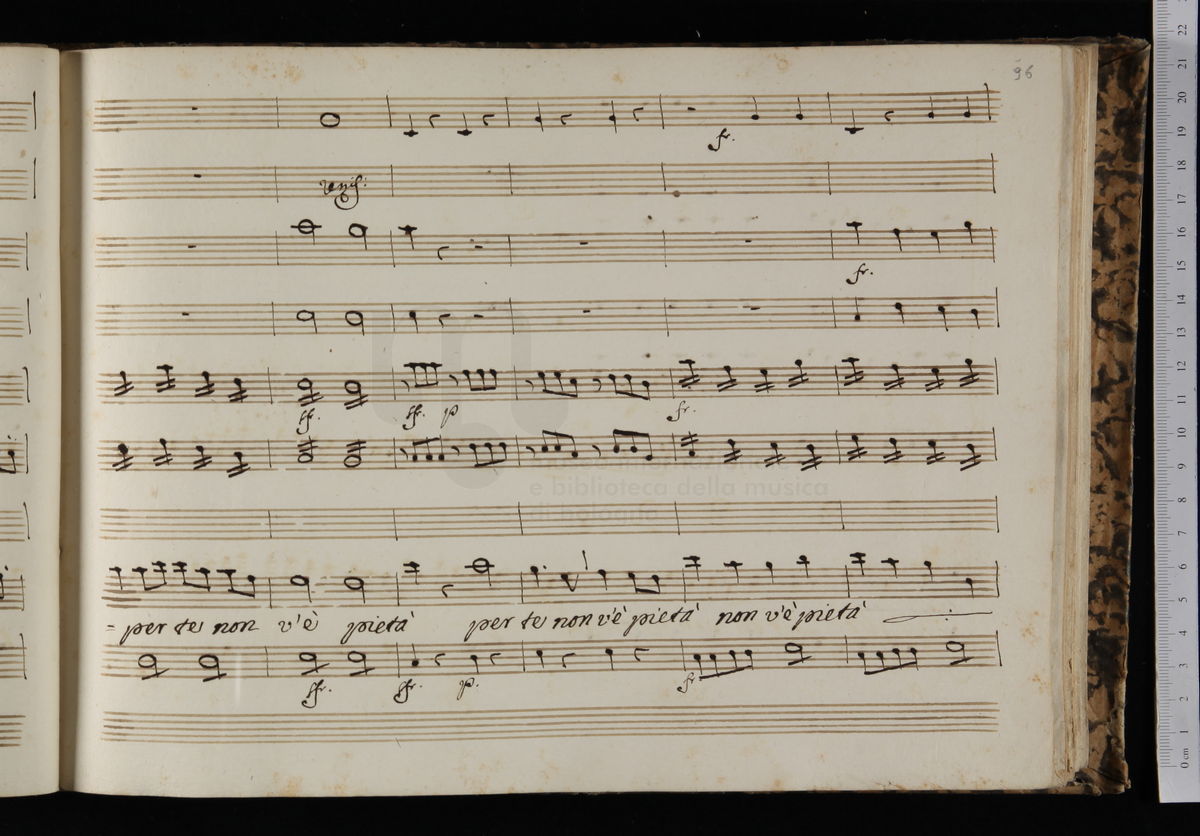 96
fr.
unis:
fr.
ffr. ffr. p fr.
e biblioteca della musica
= per te non v'è pietà per te non v'è pietà non v'è pietà
ffr. ffr. p. fr
22
21
20
19
18
17
16
15
14
13
12
11
10
9
8
7
6
5
4
3
2
1
0 cm